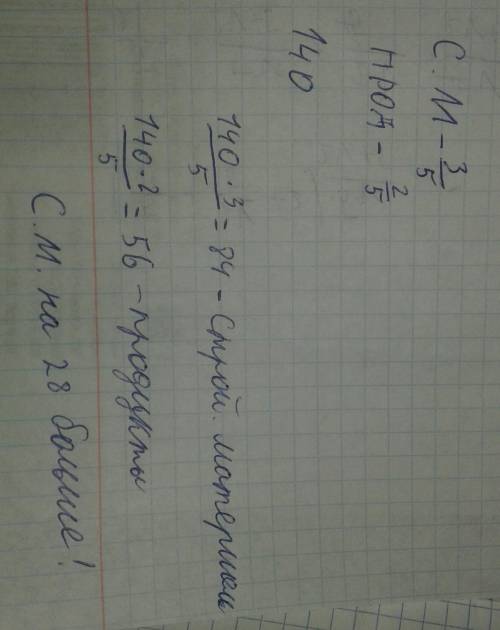 С. М - 3/5
ПРОД - 2/5
140
140 · 3 / 5 = 84 - Строй. материал
140 · 2 / 5 = 56 - продукты
С. М. на 28 больше!